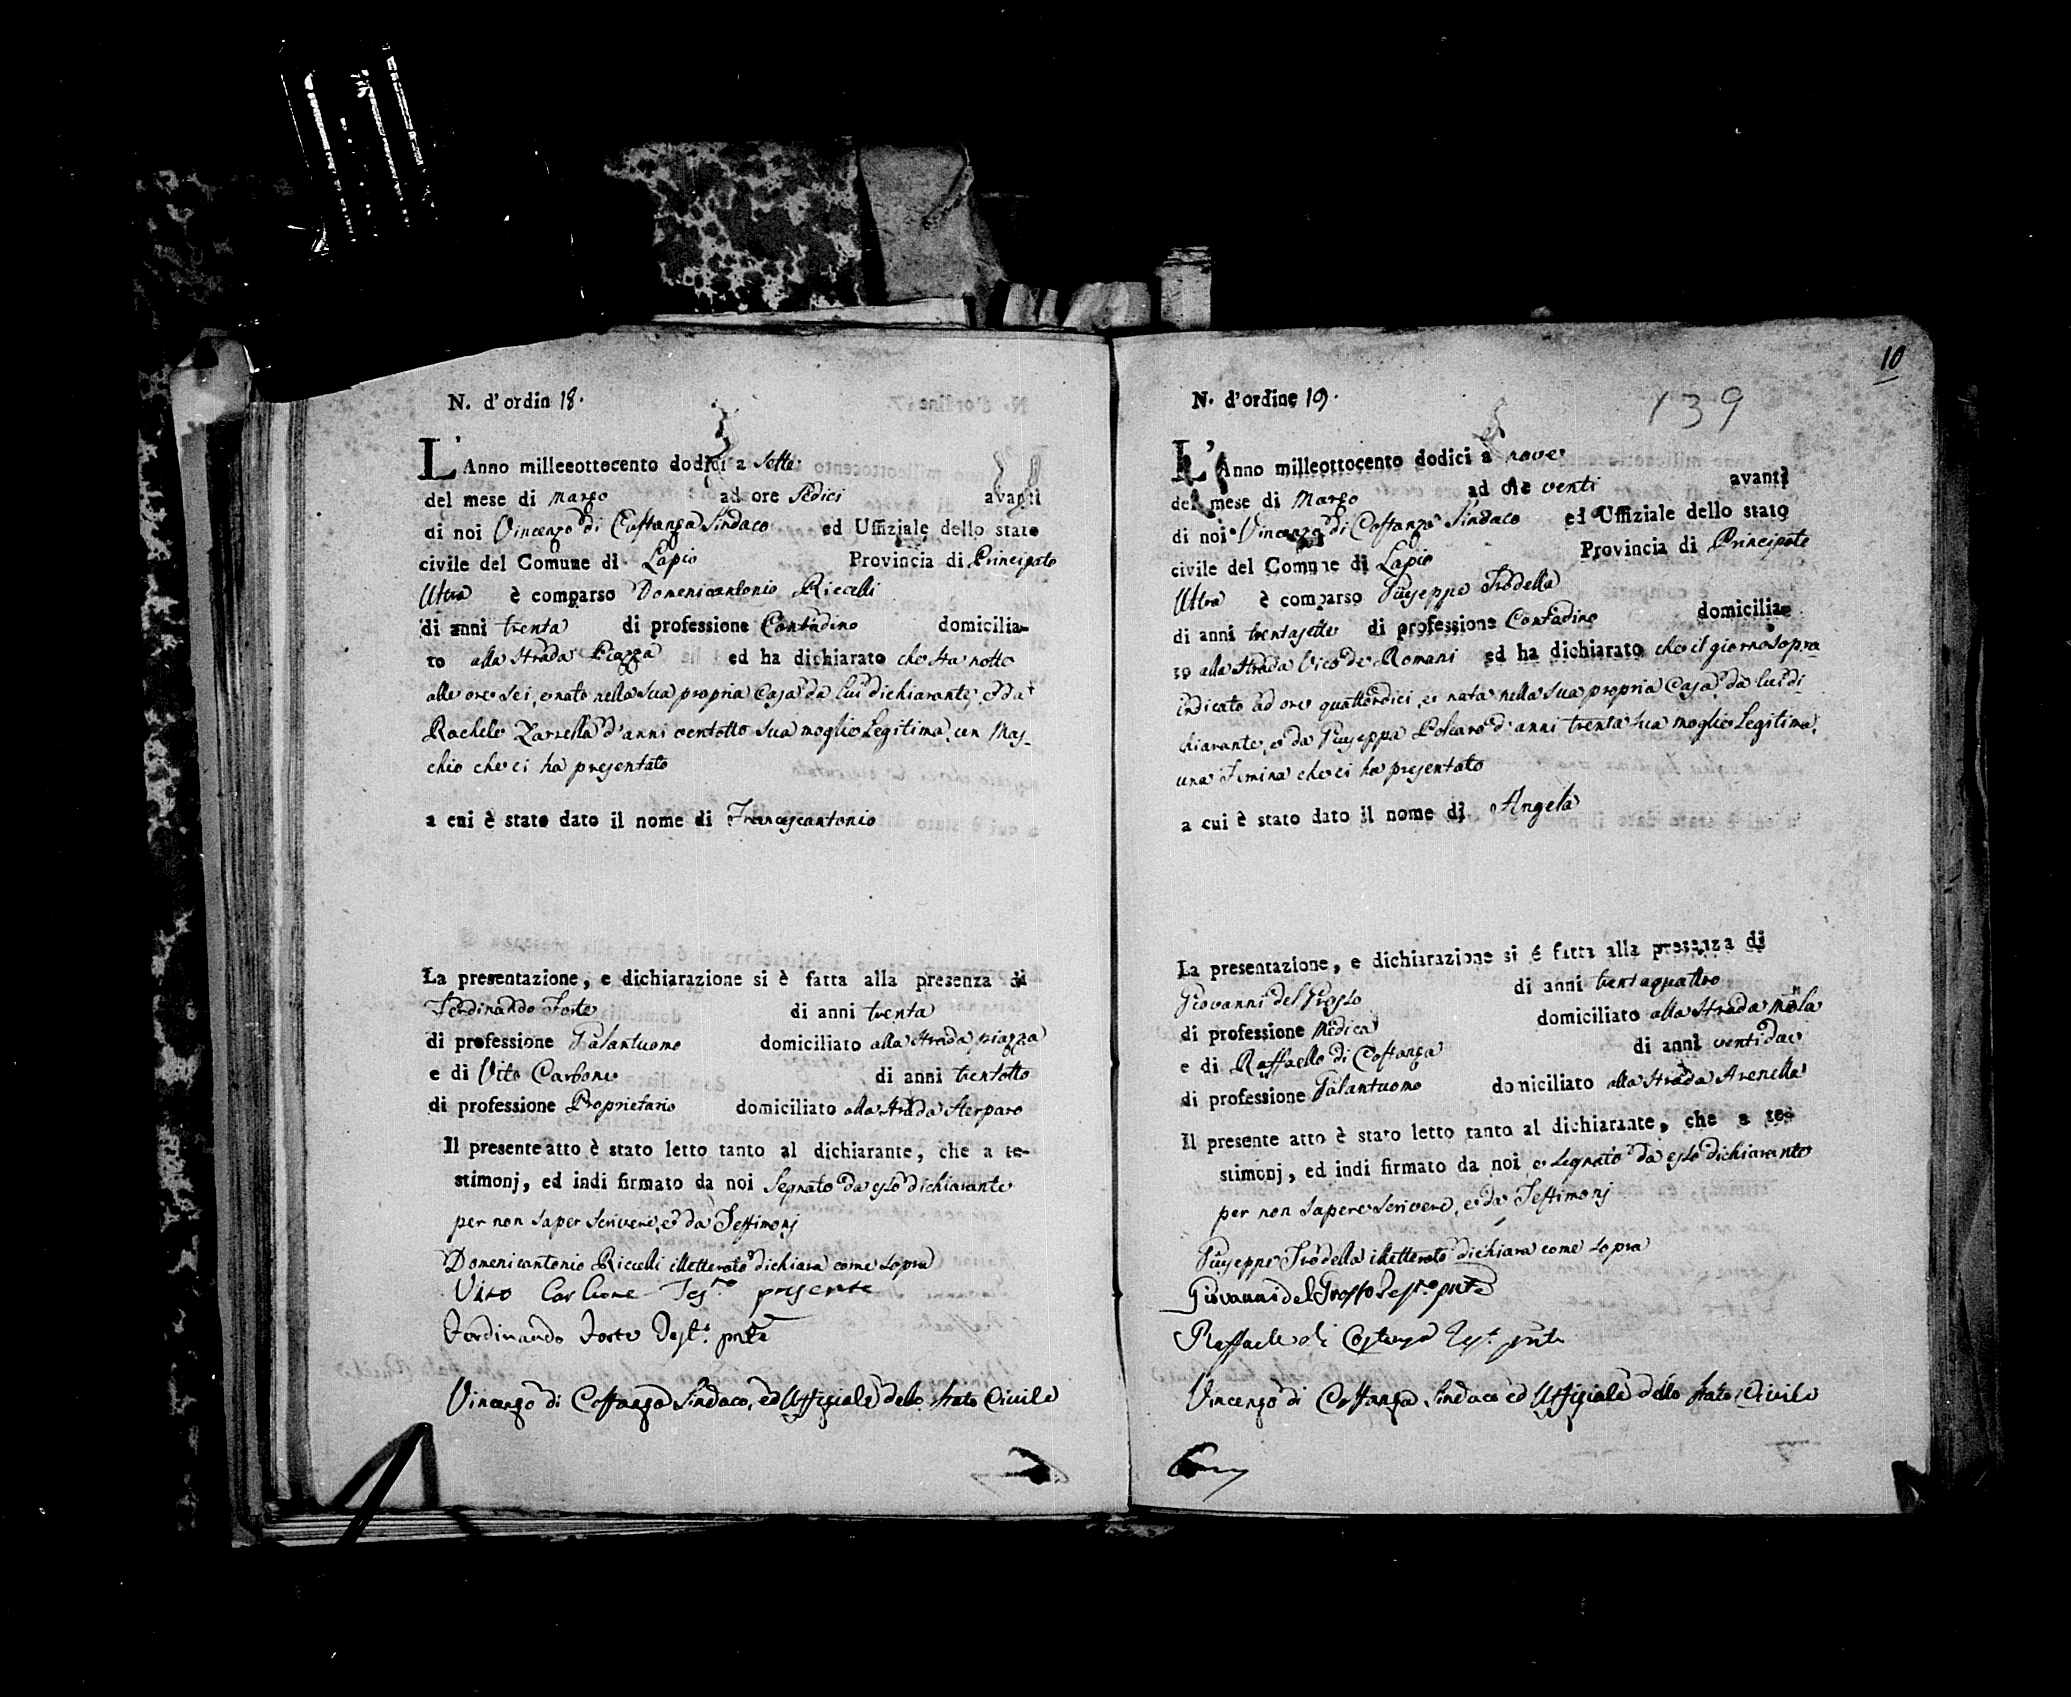 N. d'ordin 18.
L'Anno milleeottocento dodici a Sette
del mese di Marzo ad ore Sedici avanti
di noi Vincenzo di Costanza Sindaco ed Uffiziale dello stato
civile del Comune di Lapio Provincia di Principato
Ultra è comparso Domenicantonio Riccelli
di anni trenta di professione Contadino domicilia-
to alla Strada Piazza ed ha dichiarato che sta notte
alle ore sei, e nato nella sua propria Casa da lui dichiarante, e da
Rachele Zarrella d'anni ventotto sua moglie Legitima, un Mas-
chio che ci ha presentato
a cui è stato dato il nome di Francescantonio
La presentazione, e dichiarazione si è fatta alla presenza di
Ferdinando Forte di anni trenta
di professione Galantuomo domiciliato alla Strada piazza
e di Vito Carbone di anni trentotto
di professione Proprietario domiciliato alla Strada Sterparo
Il presente atto è stato letto tanto al dichiarante, che a te-
stimonj, ed indi firmato da noi Segnato da esso dichiarante
per non saper scrivere, e da Testimonj
Domenicantonio Riccelli illetterato dichiara come sopra
Vito Carbone Tes.mo presente
Ferdinando Forte Test.o pnte
Vincenzo di Costanza Sindaco, ed Uffiziale dello Stato Civile
10
139
N. d'ordine 19.
L'Anno milleottocento dodici a nove
del mese di Marzo ad ore venti avanti
di noi Vincenzo di Costanzo Sindaco ed Uffiziale dello stato
civile del Comune di Lapio Provincia di Principato
Ultra è comparso Giuseppe Trodella
di anni trentasette di professione Contadino domicilia-
to alla Strada Vico de Romani ed ha dichiarato che il giorno sopra
indicato ad ore quattordici, e nata nella sua propria Casa da lui di-
chiarante, e da Giuseppa Polcaro d'anni trenta sua moglie Legitima,
una Femina che ci ha presentato
a cui è stato dato il nome di Angela
La presentazione, e dichiarazione si é fatta alla presenza di
Giovanni del Grosso di anni trentaquattro
di professione Medica domiciliato alla Strada
e di Raffaello di Costanza di anni ventidue
di professione Galantuomo domiciliato alla Strada Arenella
Il presente atto è stato letto tanto al dichiarante, che a te-
stimonj, ed indi firmato da noi e segnato da esso dichiarante
per non sapere scrivere, e da Testimonj
Giuseppe Trodella illetterato dichiara come sopra
Giovanni del Grosso Test.o pnte
Raffaele di Costanza Test. pnte
Vincenzo di Costanza Sindaco ed Uffiziale dello Stato Civile